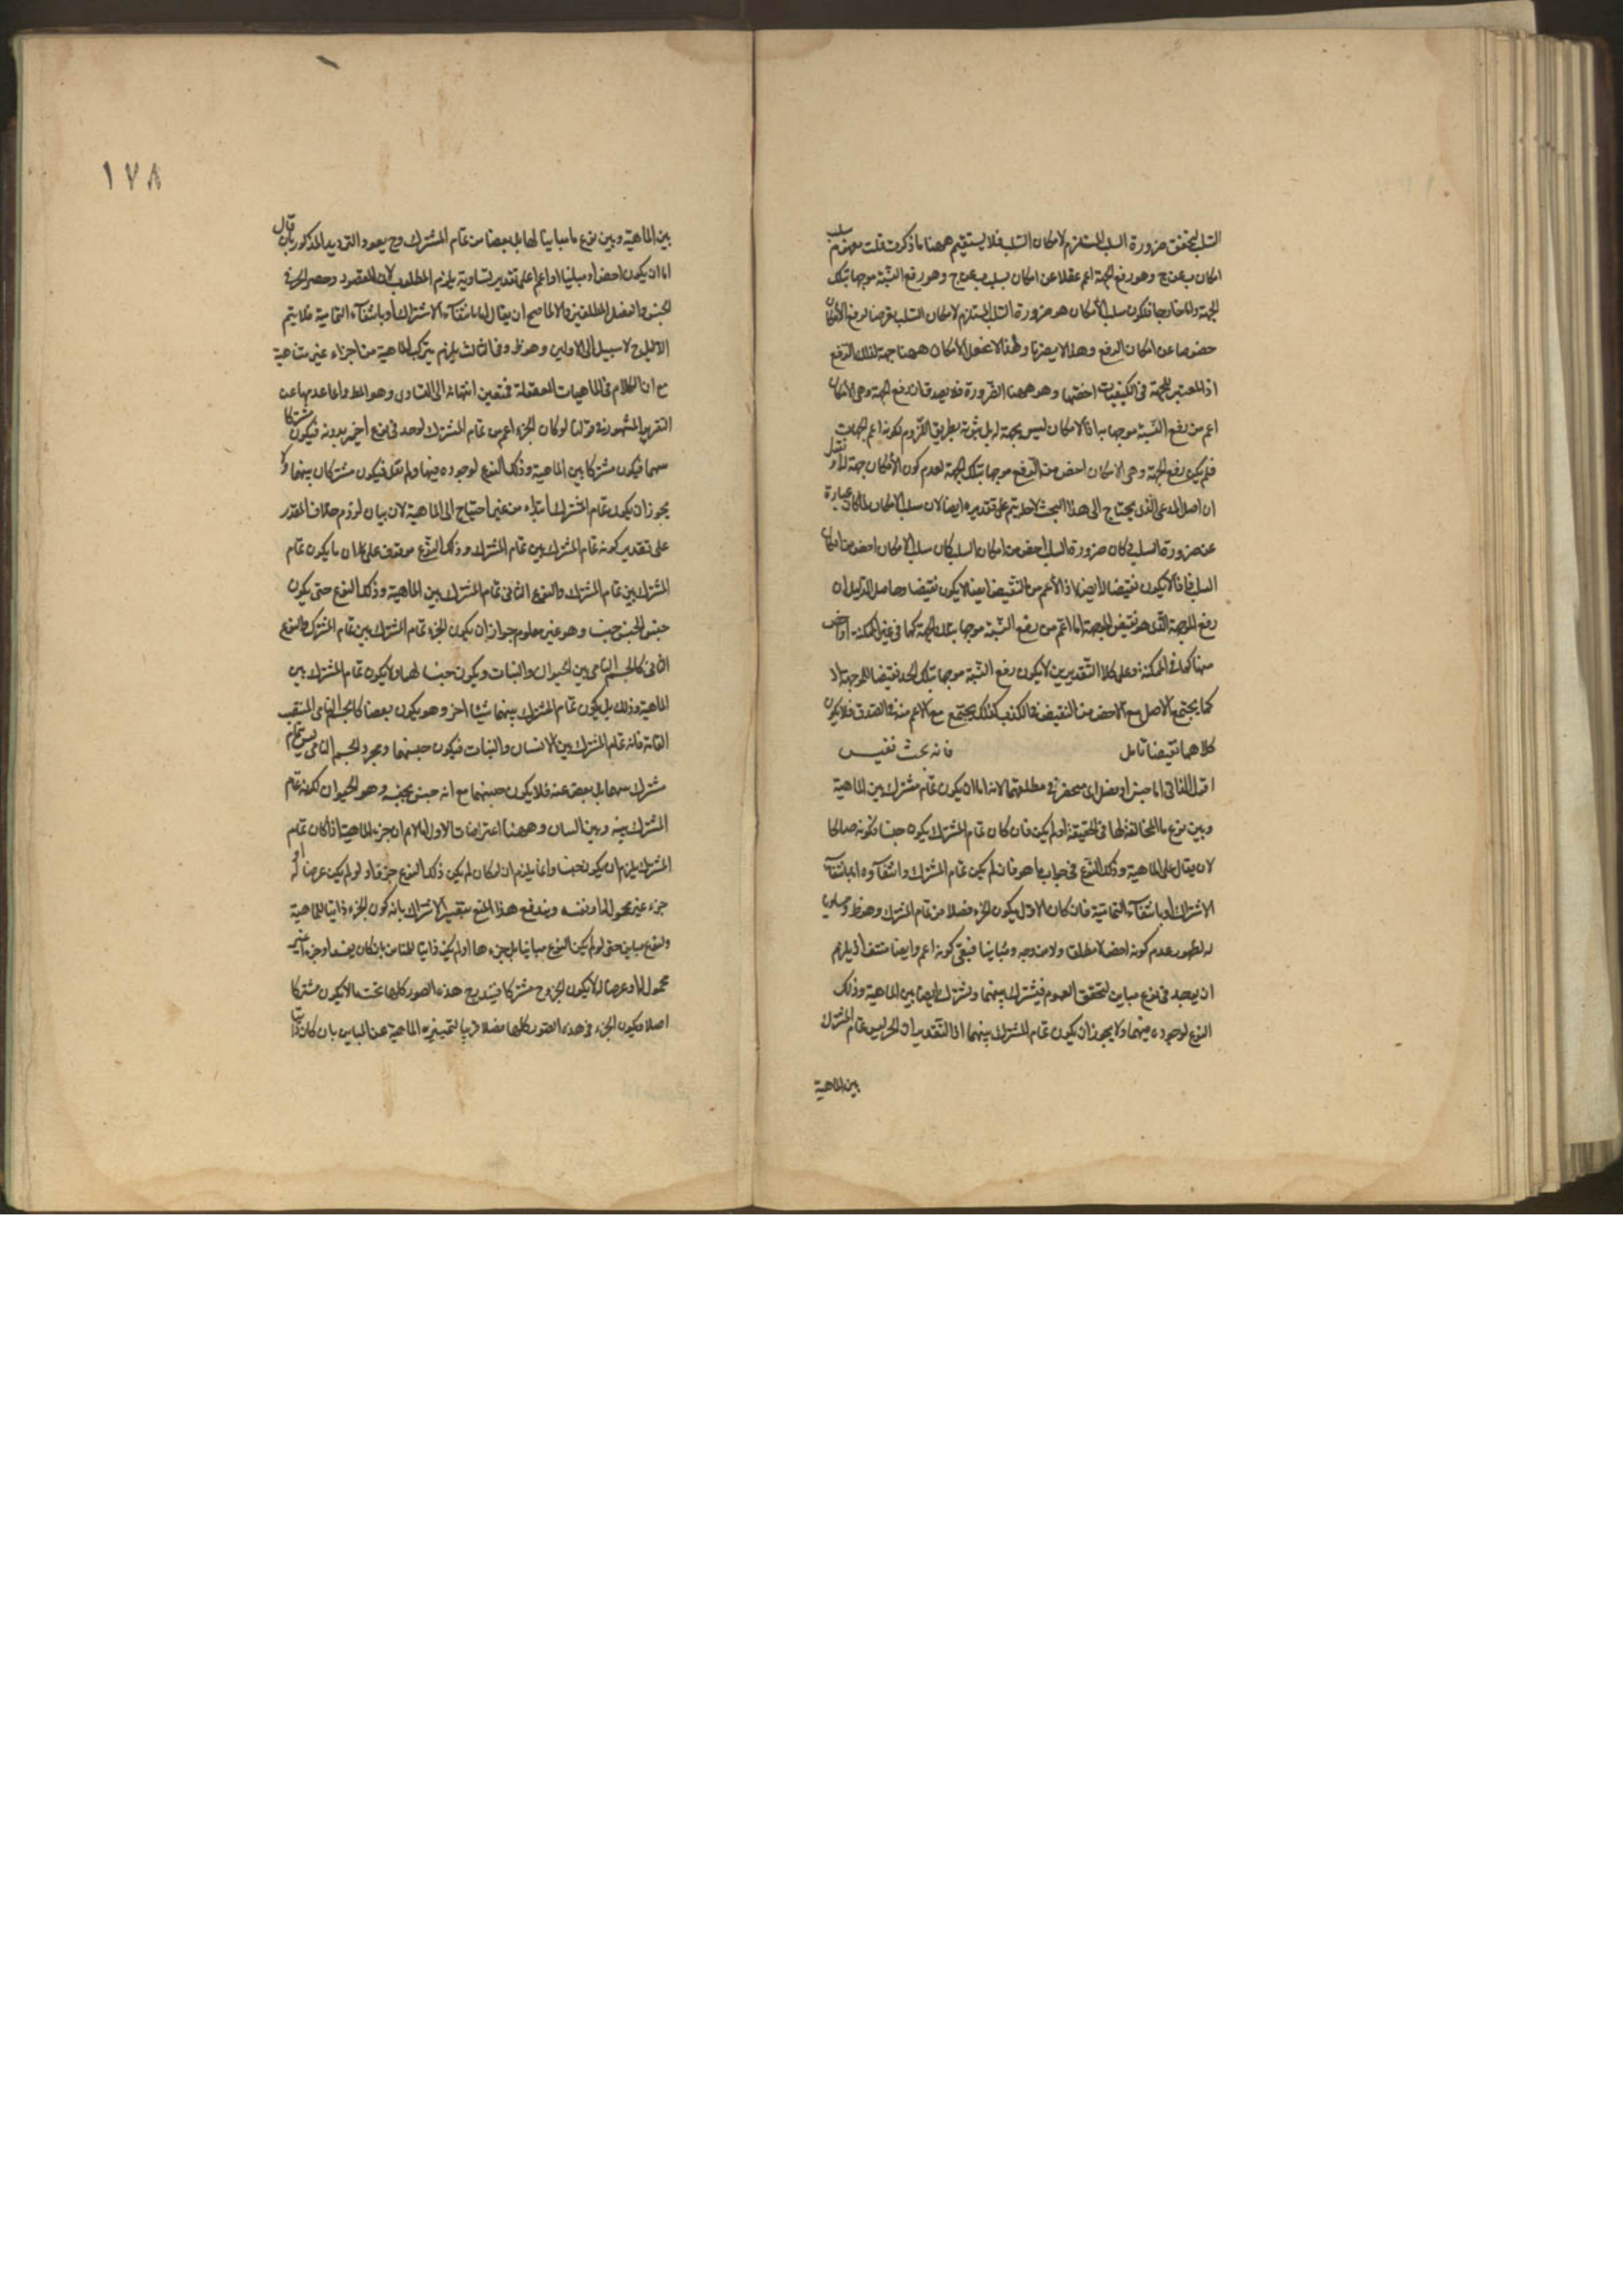 السلب لتحقق ضرورة السلب المستلزم لامكان السلب فلا يستقيم ههنا ما ذكرت قلت مفهوم سلب
امكان ب عن ج وهو رفع الجهة اعم عقلا عن امكان سلب ب عن ج وهو رفع النسبة موجها بتلك
الجهة واما خارجا فيكون سلب الامكان هو ضرورة السلب المستلزم لامكان السلب فرضا لرفع الامكان
خصوصا عن امكان الرفع وهذا لا يضرنا ولهذا لا نجعل الامكان ههنا جهة لذلك الرفع
اذ المعتبر للجهة في الكيفيات اخصها وهو ههنا الضرورة فلا يصدق ان رفع الجهة وهي الامكان
اعم من رفع النسبة موجها بها اذ الامكان ليس بجهة له بل يثبت بطريق اللزوم لكونه اعم الجهات
فلم يكن رفع الجهة وهي الامكان اخص من الرفع موجها بتلك الجهة لعدم كون الامكان جهة له او نقول
ان اصل المدعى الذي يحتاج الى هذا البحث لاجله يتم على تقديره ايضا لان سلب الامكان لما كان عبارة
عن ضرورة السلب وكان ضرورة السلب اخص من امكان السلب كان سلب الامكان اخص من امكان
السلب فاذا لا يكون نقيضا له ايضا اذ الاعم من النقيض ايضا لا يكون نقيضا وحاصل الدليل ان
رفع الموجهة الذي هو نقيض الموجهة اما اعم من رفع النسبة موجها بتلك الجهة كما في غير الممكنة او اخص
منها كما في الممكنة وعلى كلا التقديرين لا يكون رفع النسبة موجها بتلك الجهة نقيضا للموجهة اذ
كما يجتمع الاصل مع الاخص من النقيض في الكذب كذلك يجتمع مع الاعم منه في الصدق فلا يكون
كلاهما نقيضا تامل فانه بحث نفيس
اقول الذاتي اما جنس او فصل اي منحصر في مطلقهما لانه اما ان يكون تمام مشترك بين الماهية
وبين نوع ما المخالفة لها في الحقيقة او لم يكن فان كان تمام المشترك يكون جنسا لكونه صالحا
لان يقال على الماهية وذلك النوع في جواب ما هو فان لم يكن تمام المشترك وانتفاؤه اما بانتفاء
الاشتراك او بانتفاء التمامية فان كان الاول يكون الجزء فصلا من تمام المشترك وهو ظ ومساويا
له لظهور عدم كونه اخص لا مطلقا ولا من وجه ومباينا فبقي كونه اعم وايضا منتف اذ يلزم
ان يوجد في نوع مباين لتحقق العموم فيشترك بينهما ويشترك ايضا بين الماهية وذلك
النوع لوجوده فيهما ولا يجوز ان يكون تمام المشترك بينهما اذ التقدير ان الجزء ليس تمام المشترك
بين الماهية
١٧٨
بين الماهية وبين نوع ما مباينا لها بل بعضا من تمام المشترك وح يعود الترديد المذكور بان يقال
اما ان يكون اخص او مباينا او اعم على تقدير تساويه يلزم المطلوب لان المقصود وحصر الجزء في
الجنس والفصل المطلقين والا لما صح ان يقال اما بانتفاء الاشتراك او بانتفاء التمامية فلا يتم
الا بالح لا سبيل الى الاولين وهو ظ وفي الثالث يلزم تركب الماهية من اجزاء غير متناهية
مع ان الكلام في الماهيات المعقولة فتعين انتهائه الى التساوي وهو المط وانما عدلنا عن
التقرير المشهور وهو قولنا لو كان الجزء اعم من تمام المشترك لوجد في نوع آخر بدونه فيكون مشتركا
بينهما فيكون مشتركا بين الماهية وذلك النوع لوجوده فيهما ولم نقل فيكون مشتركا بينهما ولا
يجوز ان يكون تمام المشترك ابتداء من غير احتياج الى الماهية لان بيان لزوم خلاف المقدر
على تقدير كونه تمام المشترك بين تمام المشترك وذلك النوع موقوف على ان ما يكون تمام
المشترك بين تمام المشترك والنوع الثاني تمام المشترك بين الماهية وذلك النوع حتى يكون
جنس الجنس جنسا وهو غير معلوم جواز ان يكون الجزء تمام المشترك بين تمام المشترك والنوع
الثاني كالجسم النامي بين الحيوان والنبات ويكون جنسا لهما ولا يكون تمام المشترك بين
الماهية وذلك بل يكون تمام المشترك بينهما شيئا آخر وهو يكون بعضا كالجسم النامي المنتصب
القامة فانه تمام المشترك بين الانسان والنبات فيكون جنسهما ومجرد الجسم النامي ليس تمام
مشترك بينهما بل بعض عنه فلا يكون جنسهما مع انه جنس جنسه وهو الحيوان لكونه تمام
المشترك بينه وبين النبات وههنا اعتراضات الاول انا لا نم ان جزء الماهية اذا كان تمام
المشترك يلزم ان يكون جنسا وانما يلزم ان لو كان لم يكن ذلك النوع جزءا او لو لم يكن عرضا له او
جزء غير محمول اما ونفسه ويندفع هذا المنع بتفسير الاشتراك بانه كون الجزء ذاتيا للماهية
ولنوع مباين حتى لو لم يكن النوع مباينا بل جزءها او لم يكن ذاتيا للمباين بل كان نفسه او جزء غير
محمول له او عرضا له لا يكون الجزء ح مشتركا فيندرج هذه الصور كلها تحت ما لا يكون مشتركا
اصلا ويكون الجزء في هذه الصور كلها فصلا قريبا لتمييزه الماهية عن المباين بان كان ذاتيا